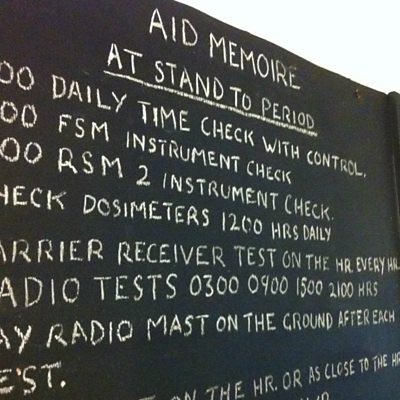 AID MEMOIRE
AT STAND TO PERIOD
00 DAILY TIME CHECK WITH CONTROL.
00 FSM INSTRUMENT CHECK
00 RSM 2 INSTRUMENT CHECK.
HECK DOSIMETERS 1200 HRS DAILY
ARRIER RECEIVER TEST ON THE HR EVERY HR
ADIO TESTS 0300 0900 1500 2100 HRS
AY RADIO MAST ON THE GROUND AFTER EACH
EST.
ON THE HR. OR AS CLOSE TO THE HR